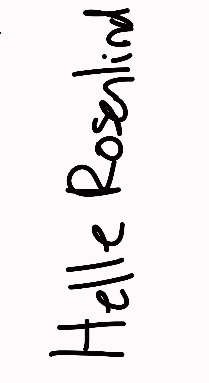 Helle Rosenlind